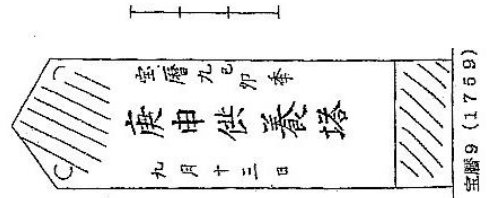 宝暦九己卯季
庚申供養塔
九月十三日
宝暦9 (1759)